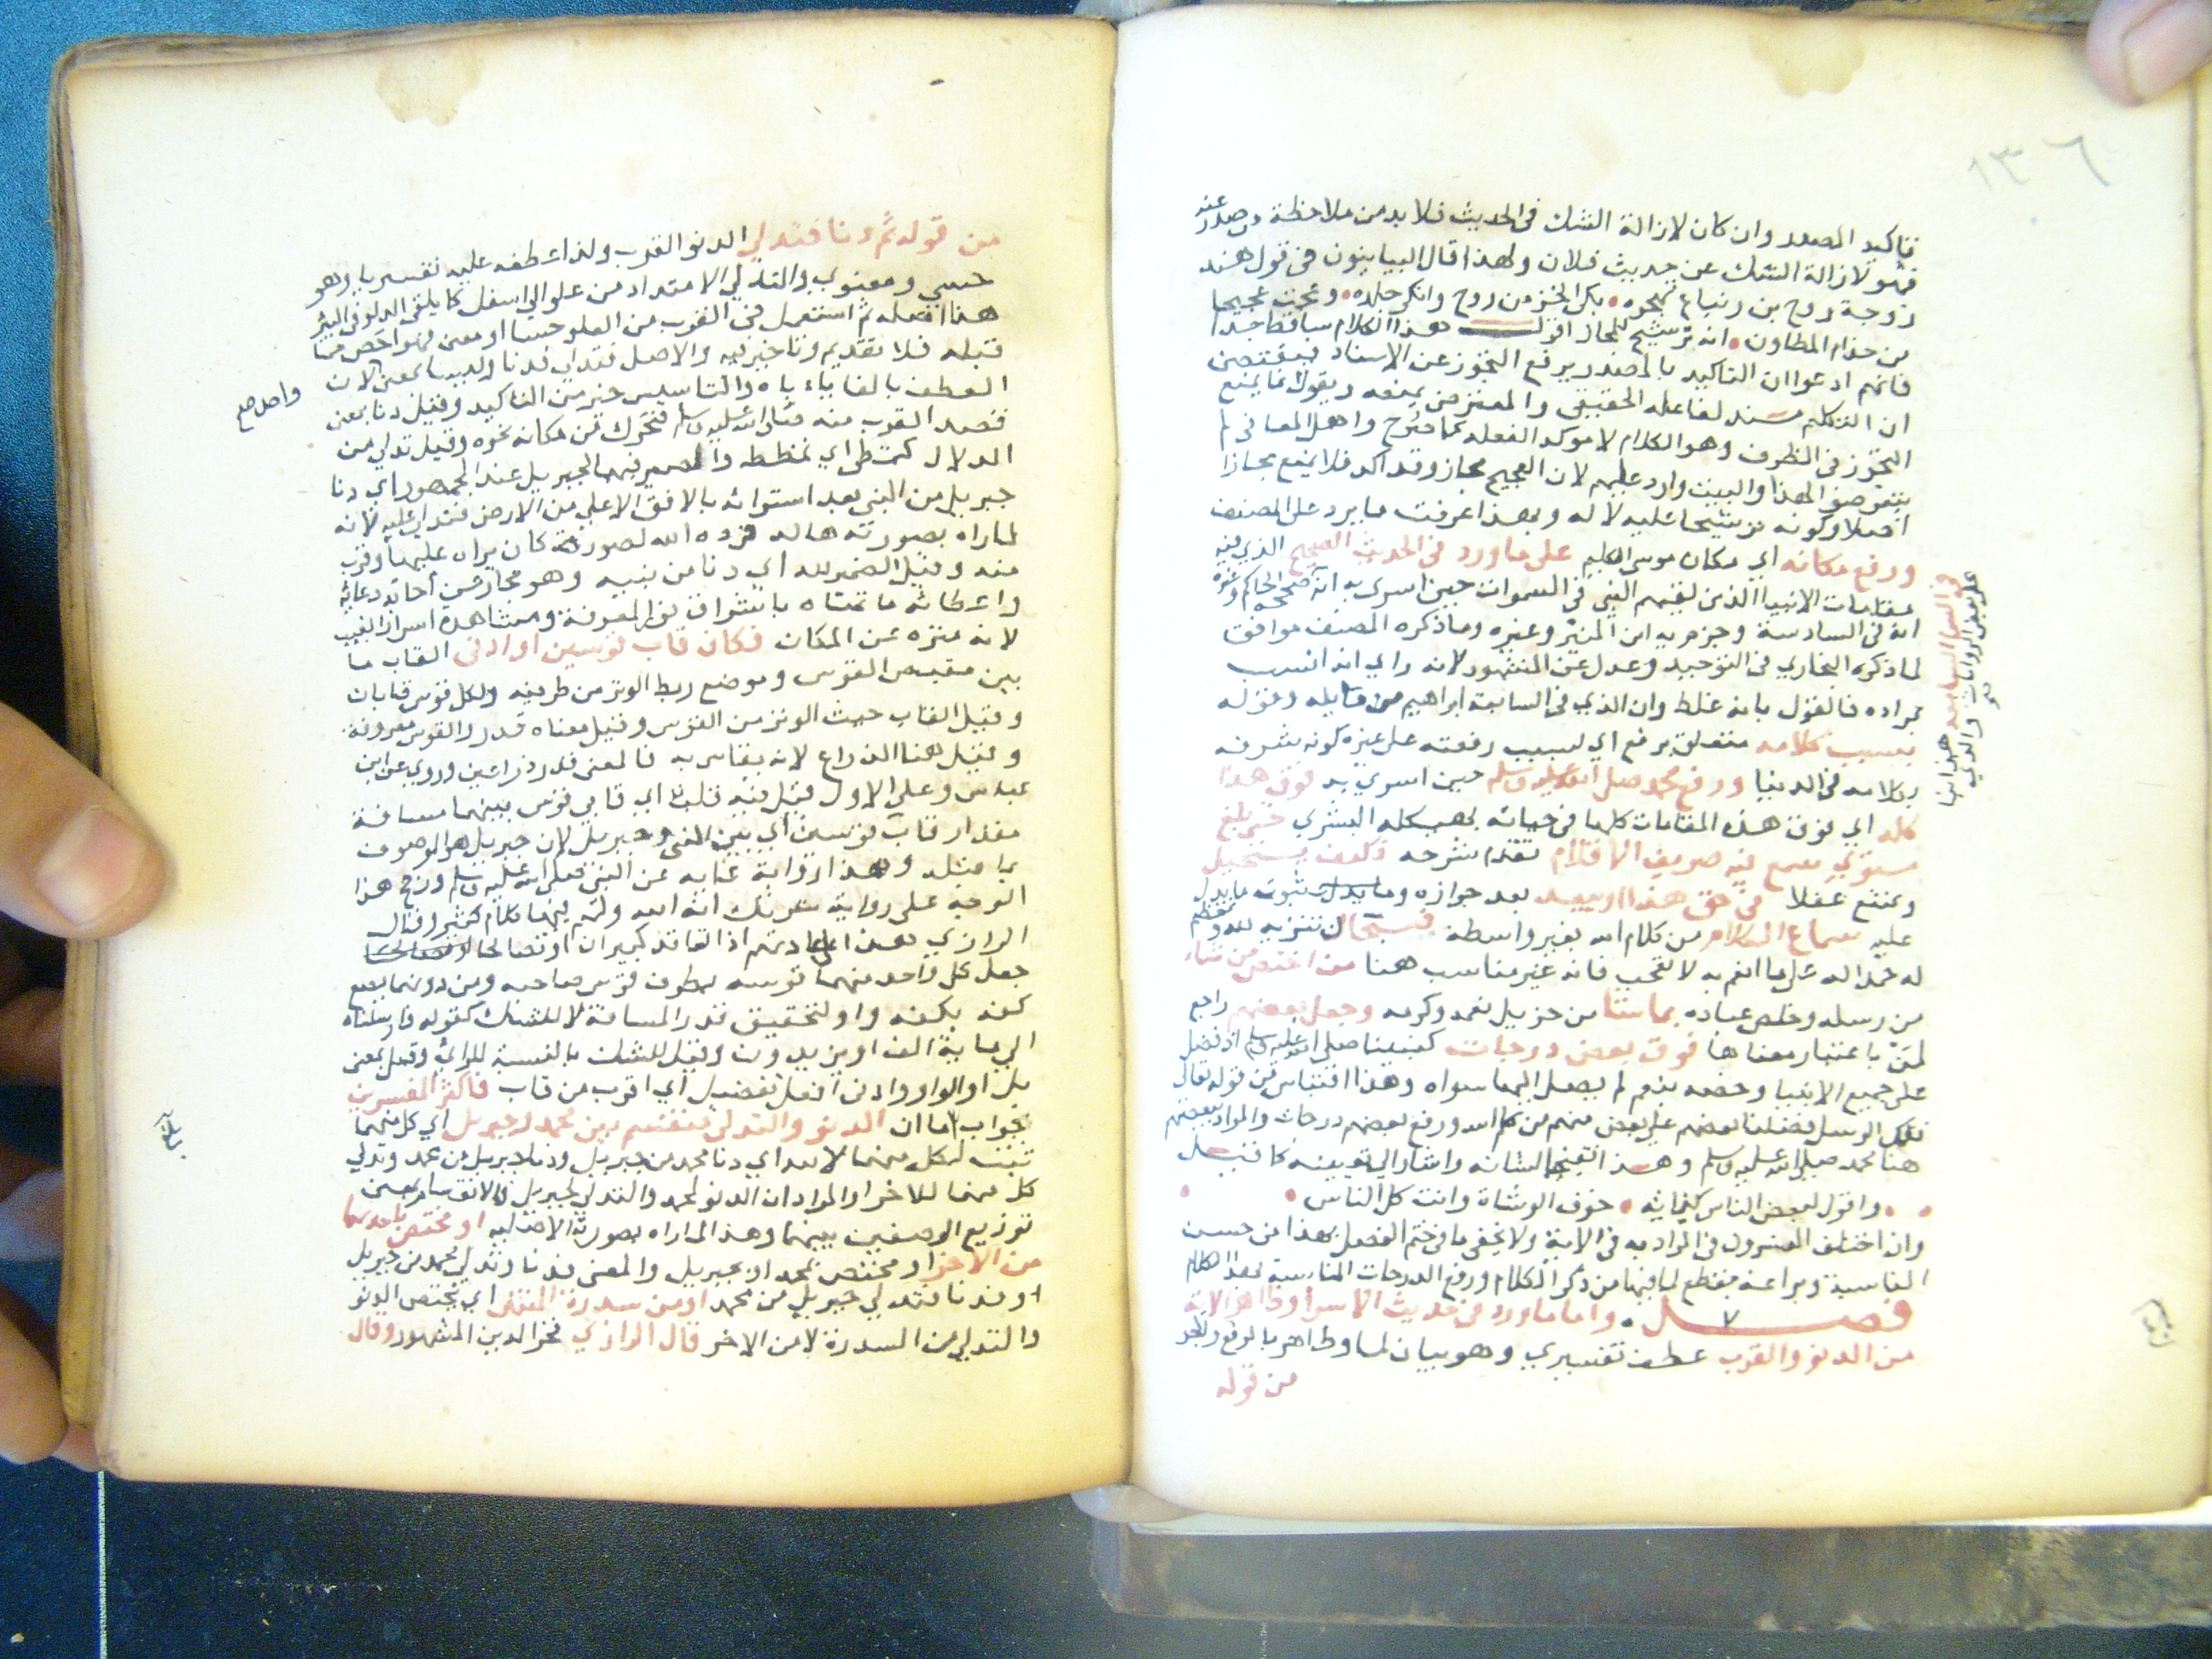 ١٣٦
تاكيد المصدر وان كان لازالة الشك فى الحديث فلا بد من ملاحظة صدر عنه
فهو لازالة الشك عن حديث فلان ولهذا قال البيانيون فى قول هند
زوجة روح بن زنباع تهجوه بكى الخز من روح وانكر جلده وعجت عجيجا
من جذام المطارف انه ترشيح للمجاز هذا الكلام ساقط جدا
فانهم ادعوا ان التاكيد بالمصدر يرفع التجوز عن الاسناد فيقتضى
ان التكلم مسند لفاعله الحقيقي والمعتزض يمنعه ويقول انما يمنع
التجوز فى الظرف وهو الكلام لا موكد الفعله كما صرح واهل المعانى لم
يتعرضوا لهذا والبيت وارد عليهم لان العجيج مجاز وقد اكد فلا يمنع مجازا
اصلا وكونه ترشيحا عليه لا له وبهذا عرفت ما يرد على المصنف
ورفع مكانه اي مكان موسى الكليم على ما ورد فى الحديث الصحيح الذي فيه
مقامات الانبيا الذين لقيهم النبي فى السموات حين اسرى به انه
انه فى السادسة وجزم به ابن المنير وغيره وما ذكره المصنف موافق
لما ذكره البخاري فى التوحيد وعدل عن المشهور لانه راي انه انسب
بمراده فالقول بانه غلط وان الذي فى السابعة ابراهيم من قايله وقوله
بسبب كلامه متعلق برفع اي لسبب رفعته على غيره كونه شرفه
بكلامه فى الدنيا ورفع محمد صلى الله عليه وسلم حين اسري به فوق هذا
كله اي فوق هذه المقامات كلها فى حياته بهيكله البشري حتى بلغ
مستوي سمع فيه صريف الاقلام تقدم شرحه فكيف يستحيل
ويمتنع عقلا فى حق هذا او يبعد بعد جوازه وما يدل ثبوته ما يدل
عليه سماع الكلام من كلام الله بغير واسطة فسبحان تنزيه لله وتعظيم
له حمدا له على ما انعم به لا تعجب فانه غير مناسب هنا من اختص من شاء
من رسله وخلص عباده بما شا من جزيل نعمه وكرمه وجعل بعضهم راجع
لمن باعتبار معناها فوق بعض درجات كنبينا صلى الله عليه وسلم اذ فضل
على جميع الانبيا وخصه بنعم لم يصل اليها سواه وهذا اقتباس من قوله تعالى
تلك الرسل فضلنا بعضهم على بعض منهم من كلم الله ورفع بعضهم درجات والمراد ببعضهم
هنا محمد صلى الله عليه وسلم وهذا لشانه واشار الى تعيينه كما قيل
واقول بعض الناس كناية خوف الوشاة وانت كل الناس
وان اختلف المفسرون فى المراد به فى الاية ولا يخفى ما فى ختم الفصل بهذا من حسن
المناسبة وبراعة مقطع لما فيها من ذكر الكلام ورفع الدرجات المناسبة لهذا الكلام
فصل ٧ واما ما ورد فى حديث الاسرا وظاهر الاية
من الدنو والقرب عطف تفسيري وهو بيان لما وظاهر بالرفع والجر
من قوله
من قوله ثم دنا فتدلي الدنو القرب ولذا عطفه عليه تفسيريا وهو
حسي ومعنوي والتدلي الامتداد من علو الى اسفل كما يلقى الدلو فى البئر
هذا اصله ثم استعمل فى القرب من العلو حسا او معنى فهو اخص مما
قبله فلا تقديم وتاخير فيه والاصل فتدلى فدنا وليسا بمعنى لان
العطف بالفا ياباه والتاسيس خير من التاكيد وقيل دنا بمعنى
قصد القرب منه صلى الله عليه وسلم فتحرك من مكانه نحوه وقيل تدلي من
واصل صح
الدلال كتمطى اي تمطط والضمير فيهما لجبريل عند الجمهور اي دنا
جبريل من النبى بعد استوائه بالافق الاعلى من الارض فتدلى عليه لانه
لما راه بصورته هاله فرده الله لصورة كان يراه عليها وقرب
منه وقيل الضمير لله اي دنا من نبيه وهو مجاز عن اجابة دعائه
واعطائه ما تمناه باشراق نور المعرفة ومشاهدة اسرار الغيب
لانه منزه عن المكان فكان قاب قوسين او ادنى القاب ما
بين مقبض القوس وموضع ربط الوتر من طرفيه ولكل قوس قابان
وقيل القاب حيث الوتر من القوس وقيل معناه قدر والقوس معروفة
وقيل هنا الذراع لانه يقاس به فالمعنى قدر ذراعين وروي عن ابن
عباس وعلى الاول قيل فيه قلب اي قابي قوس بينهما مسافة
مقدار قاب قوسين اي بين النبي وجبريل لان جبريل هو الموصوف
بما قبله وهذا رواية عنه عن النبي صلى الله عليه وسلم ورجح هذا
الوجه على رواية شريك انه الله ولهم فيها كلام كثير وقال
الرازي هذا على عادتهم اذا تعاقد كبيران او تصالحا
جعل كل واحد منهما قوسه بطرف قوس صاحبه ومن دونهما يضع
كفه بكفه واو لتحقيق قدر المسافة لا للشك كقوله فارسلناه
الى ماية الف او يزيدون وقيل للشك بالنسبة للرائي وقيل بمعنى
بل او الواو وادنى افعل تفضيل اي اقرب من قاب فاكثر المفسرين
جواب اما ان الدنو والتدلى منقسم بين محمد وجبريل اي كل منهما
ثبت لكل منهما لا لله اي دنا محمد من جبريل ودنا جبريل من محمد وتدلي
كل منهما للاخر او المراد ان الدنو لمحمد والتدلى لجبريل فالانقسام بمعنى
توزيع الوصفين بينهما وهذا لما راه بصورته الاصليه او مختص باحدهما
من الاخر او مختص بمحمد او بجبريل والمعنى فدنا وتدلي محمد من جبريل
او فدنا فتدلي جبريل من محمد او من سدرة المنتهى اي يختص الدنو
والتدلي من السدرة لا من الاخر قال الرازي فخر الدين المشهور وقال